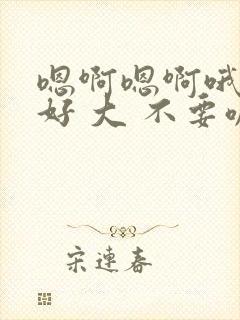 嗯啊嗯啊哦
好大不要
宋連春